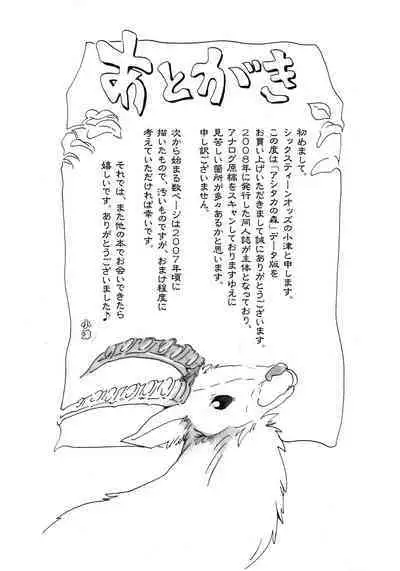 あとがき
初めまして。
シックスティーンオッズの小津と申します。
この度は「アシタカの森」データ版を
お買い上げいただきまして誠にありがとうございます。
2008年に発行した同人誌が主体となっており、
アナログ原稿をスキャンしておりますゆえに
見苦しい箇所が多々あるかと思います。
申し訳ございません。
次から始まる数ページは2007年頃に
描いたもので、汚いものですが、おまけ程度に
考えていただければ幸いです。
それでは、また他の本でお会いできたら
嬉しいです。ありがとうございました♪